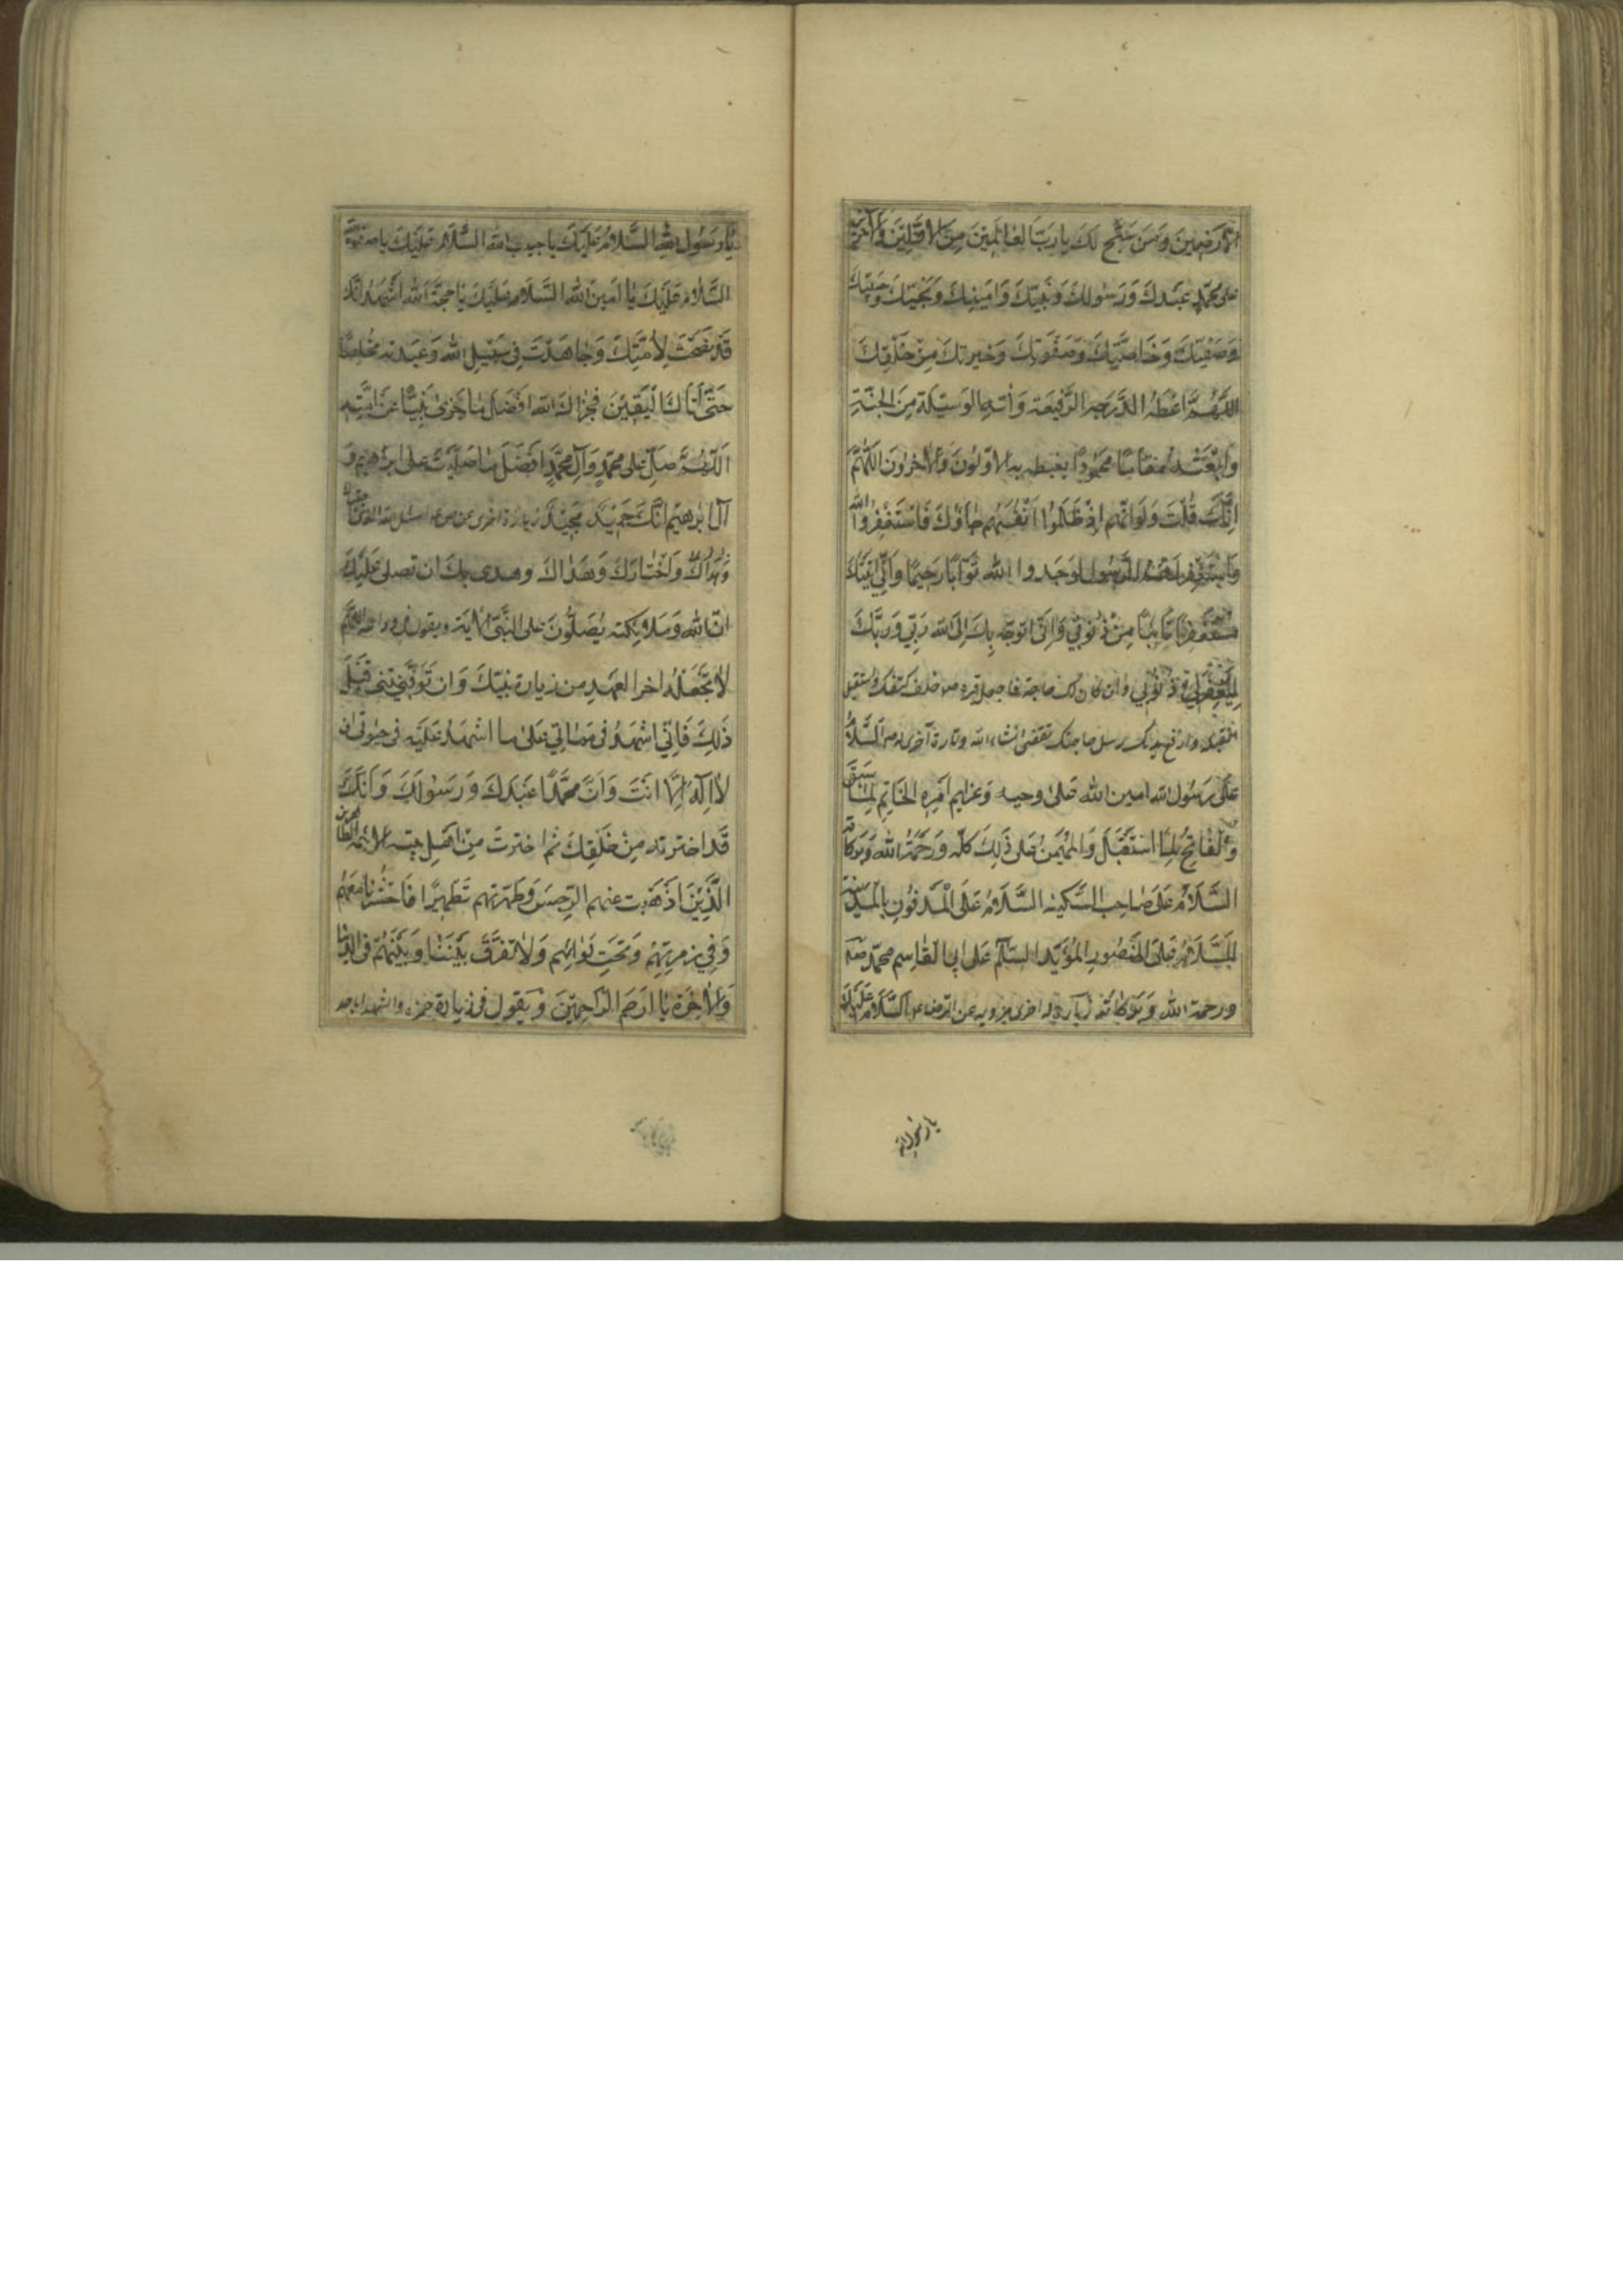 الارضين ومن سبّح لك يا ربّ العالمين من الاوّلين والآخرين
على محمّد عبدك ورسولك ونبيّك وامينك ونجيّك وحبيبك
وصفيّك وخاصّتك وصفوتك وخيرتك من خلقك
اللّهمّ اعطه الدّرجه الرّفيعة وآته الوسيلة من الجنّة
وابعثه مقاما محمودا يغبطه به الاوّلون والآخرون اللّهمّ
انّك قلت ولو انّهم اذ ظلموا انفسهم جاؤك فاستغفروا الله
واستغفر لهم الرّسول لوجدوا الله توّابا رحيما وانّي اتيتك
مستغفرا تائبا من ذنوبي وانّي اتوجّه بك الى الله ربّي وربّك
ليغفر لي ذنوبي وان كان لك حاجة فاجعل قبره ص خلف كتفك واستقبل
القبلة وارفع يديك وسل حاجتك تقضى انشاء الله زيارة آخرى له ص السّلام
على رسول الله امين الله على وحيه وعزايم امره الخاتم لما سبق
والفاتح لما استقبل والمهيمن على ذلك كلّه ورحمة الله وبركاته
السّلام على صاحب السّكينه السّلام على المدفون بالمدينة
السّلام على المنصور المؤيّد السّلم على ابي القاسم محمّد
ورحمة الله وبركاته زيارة له اخرى مرويه عن الرّضا ع السّلام عليك
يا رسول الله
يا رسول الله السّلام عليك يا حبيب الله السّلام عليك يا صفوة الله
السّلام عليك يا امين الله السّلام عليك يا حجّة الله اشهد انّك
قد نصحت لامّتك وجاهدت في سبيل الله وعبدته مخلصا
حتّى اتاك اليقين فجزاك الله افضل ما جزى نبيّا عن امّته
اللّهمّ صلّ على محمّد وآل محمّد افضل ما صلّيت على ابراهيم و
آل ابرهيم انّك حميد مجيد زيارة اخرى عن ص ع اسئل الله الذي
واختارك وهداك وهدى بك ان تصلى عليك
انّ الله وملائكته يصلّون على النّبيّ الآية ويقول في وداعه اللّهمّ
لا تجعله اخر العهد من زيارة نبيّك وان توفّيتني قبل
ذلك فانّي اشهد في مماتي على ما اشهد عليه في حيوتي ان
لا اله الّا انت وانّ محمّدا عبدك ورسولك وانّك
قد اخترته من خلقك ثم اخترت من اهل بيته الائمّه الطّاهرين
الّذين اذهبت عنهم الرّجس وطهّرتهم تطهيرا فاحشرنا معهم
وفي زمرتهم وتحت لوائهم ولا تفرّق بيننا وبينهم في الدّنيا
والآخرة يا ارحم الرّاحمين ويقول في زيارة حمزه والشهداء باحد